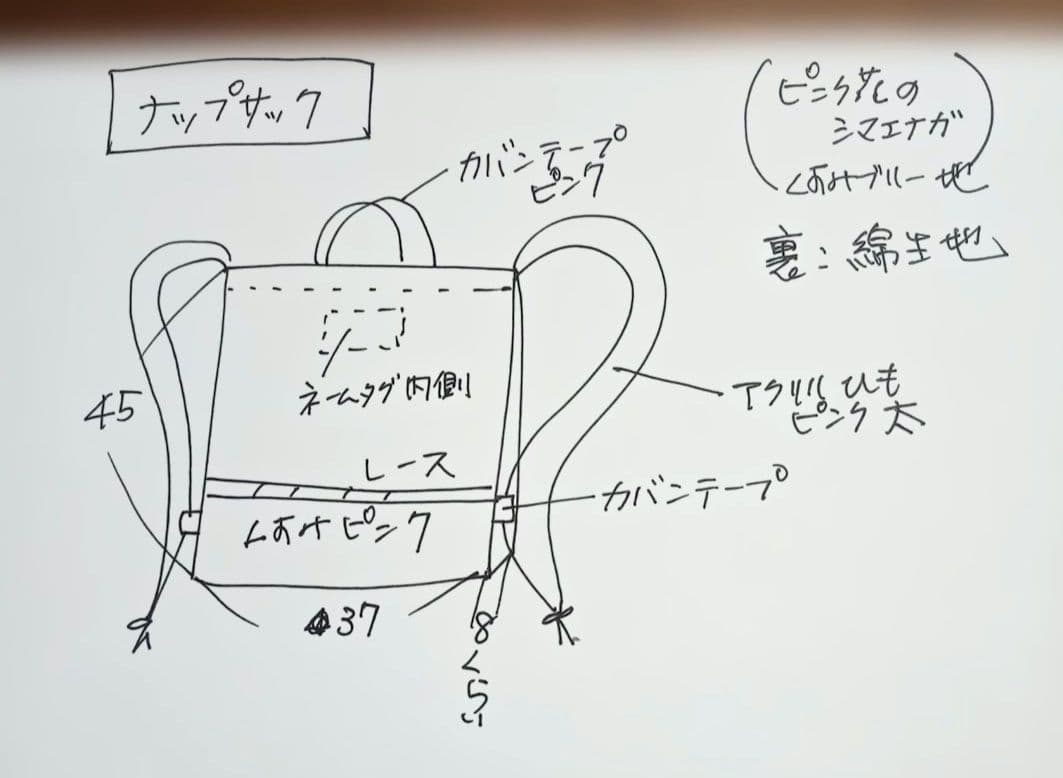 ナップサック
(ピンク花の
シマエナガ
くすみブルー地)
裏:綿生地
カバンテープ
ピンク
ネームタグ内側
45
アクリルひも
ピンク太
レース
カバンテープ
くすみピンク
37
8くらい